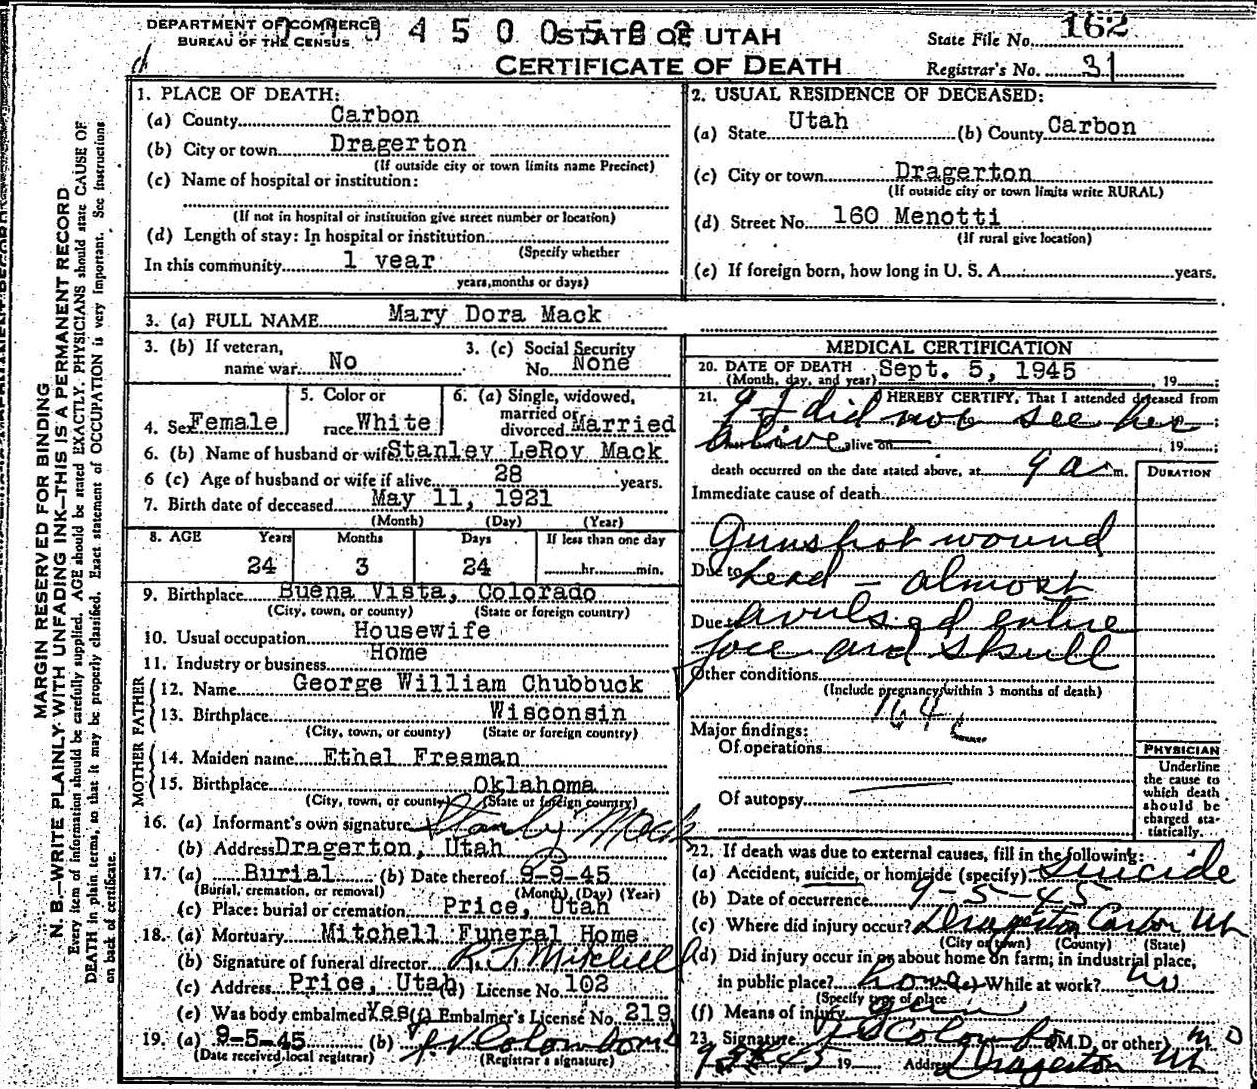 DEPARTMENT OF COMMERCE
BUREAU OF THE CENSUS
STATE OF UTAH
CERTIFICATE OF DEATH
State File No. 162
Registrar's No. 31
MARGIN RESERVED FOR BINDING
N. B.—WRITE PLAINLY WITH UNFADING INK—THIS IS A PERMANENT RECORD
Every item of information should be carefully supplied. AGE should be stated EXACTLY. PHYSICIANS should state CAUSE OF
DEATH in plain terms, so that it may be properly classified. Exact statement of OCCUPATION is very important. See instructions
on back of certificate.
1. PLACE OF DEATH:
(a) County Carbon
(b) City or town Dragerton
(If outside city or town limits name Precinct)
(c) Name of hospital or institution:
(If not in hospital or institution give street number or location)
(d) Length of stay: In hospital or institution
(Specify whether
In this community 1 year
years, months or days)
2. USUAL RESIDENCE OF DECEASED:
(a) State Utah (b) County Carbon
(c) City or town Dragerton
(If outside city or town limits write RURAL)
(d) Street No. 160 Menotti
(If rural give location)
(e) If foreign born, how long in U. S. A. years.
3. (a) FULL NAME Mary Dora Mack
3. (b) If veteran, name war No
3. (c) Social Security No. None
4. Sex Female
5. Color or race White
6. (a) Single, widowed, married or divorced Married
6. (b) Name of husband or wife Stanley LeRoy Mack
6 (c) Age of husband or wife if alive 28 years.
7. Birth date of deceased May 11, 1921
(Month) (Day) (Year)
8. AGE Years Months Days If less than one day
24 3 24 hr. min.
9. Birthplace Buena Vista, Colorado
(City, town, or county) (State or foreign country)
10. Usual occupation Housewife
11. Industry or business Home
FATHER
12. Name George William Chubbuck
13. Birthplace Wisconsin
(City, town, or county) (State or foreign country)
MOTHER
14. Maiden name Ethel Freeman
15. Birthplace Oklahoma
(City, town, or county) (State or foreign country)
16. (a) Informant's own signature Stanley Mack
(b) Address Dragerton, Utah
17. (a) Burial (b) Date thereof 9-9-45
(Burial, cremation, or removal) (Month) (Day) (Year)
(c) Place: burial or cremation Price, Utah
18. (a) Mortuary Mitchell Funeral Home
(b) Signature of funeral director R. J. Mitchell
(c) Address Price, Utah (d) License No. 102
(e) Was body embalmed Yes (f) Embalmer's License No. 219
19. (a) 9-5-45 (b) Colombo
(Date received local registrar) (Registrar's signature)
MEDICAL CERTIFICATION
20. DATE OF DEATH Sept. 5, 1945, 19
(Month, day, and year)
21. I HEREBY CERTIFY, That I attended deceased from
I did not see her
alive alive on 19
death occurred on the date stated above, at 9 a m.
DURATION
Immediate cause of death
Gunshot wound
Due to head – almost
Due to avulsed entire
face and skull
Other conditions
(Include pregnancy within 3 months of death)
164c
Major findings:
Of operations
Of autopsy
PHYSICIAN
Underline
the cause to
which death
should be
charged sta-
tistically.
22. If death was due to external causes, fill in the following:
(a) Accident, suicide, or homicide (specify) Suicide
(b) Date of occurrence 9-5-45
(c) Where did injury occur? Dragerton Carbon Ut
(City or town) (County) (State)
(d) Did injury occur in or about home on farm, in industrial place,
in public place? home While at work? no
(Specify type of place)
(f) Means of injury gun
23. Signature Colombo (M.D. or other) M D
19 Address Dragerton Ut